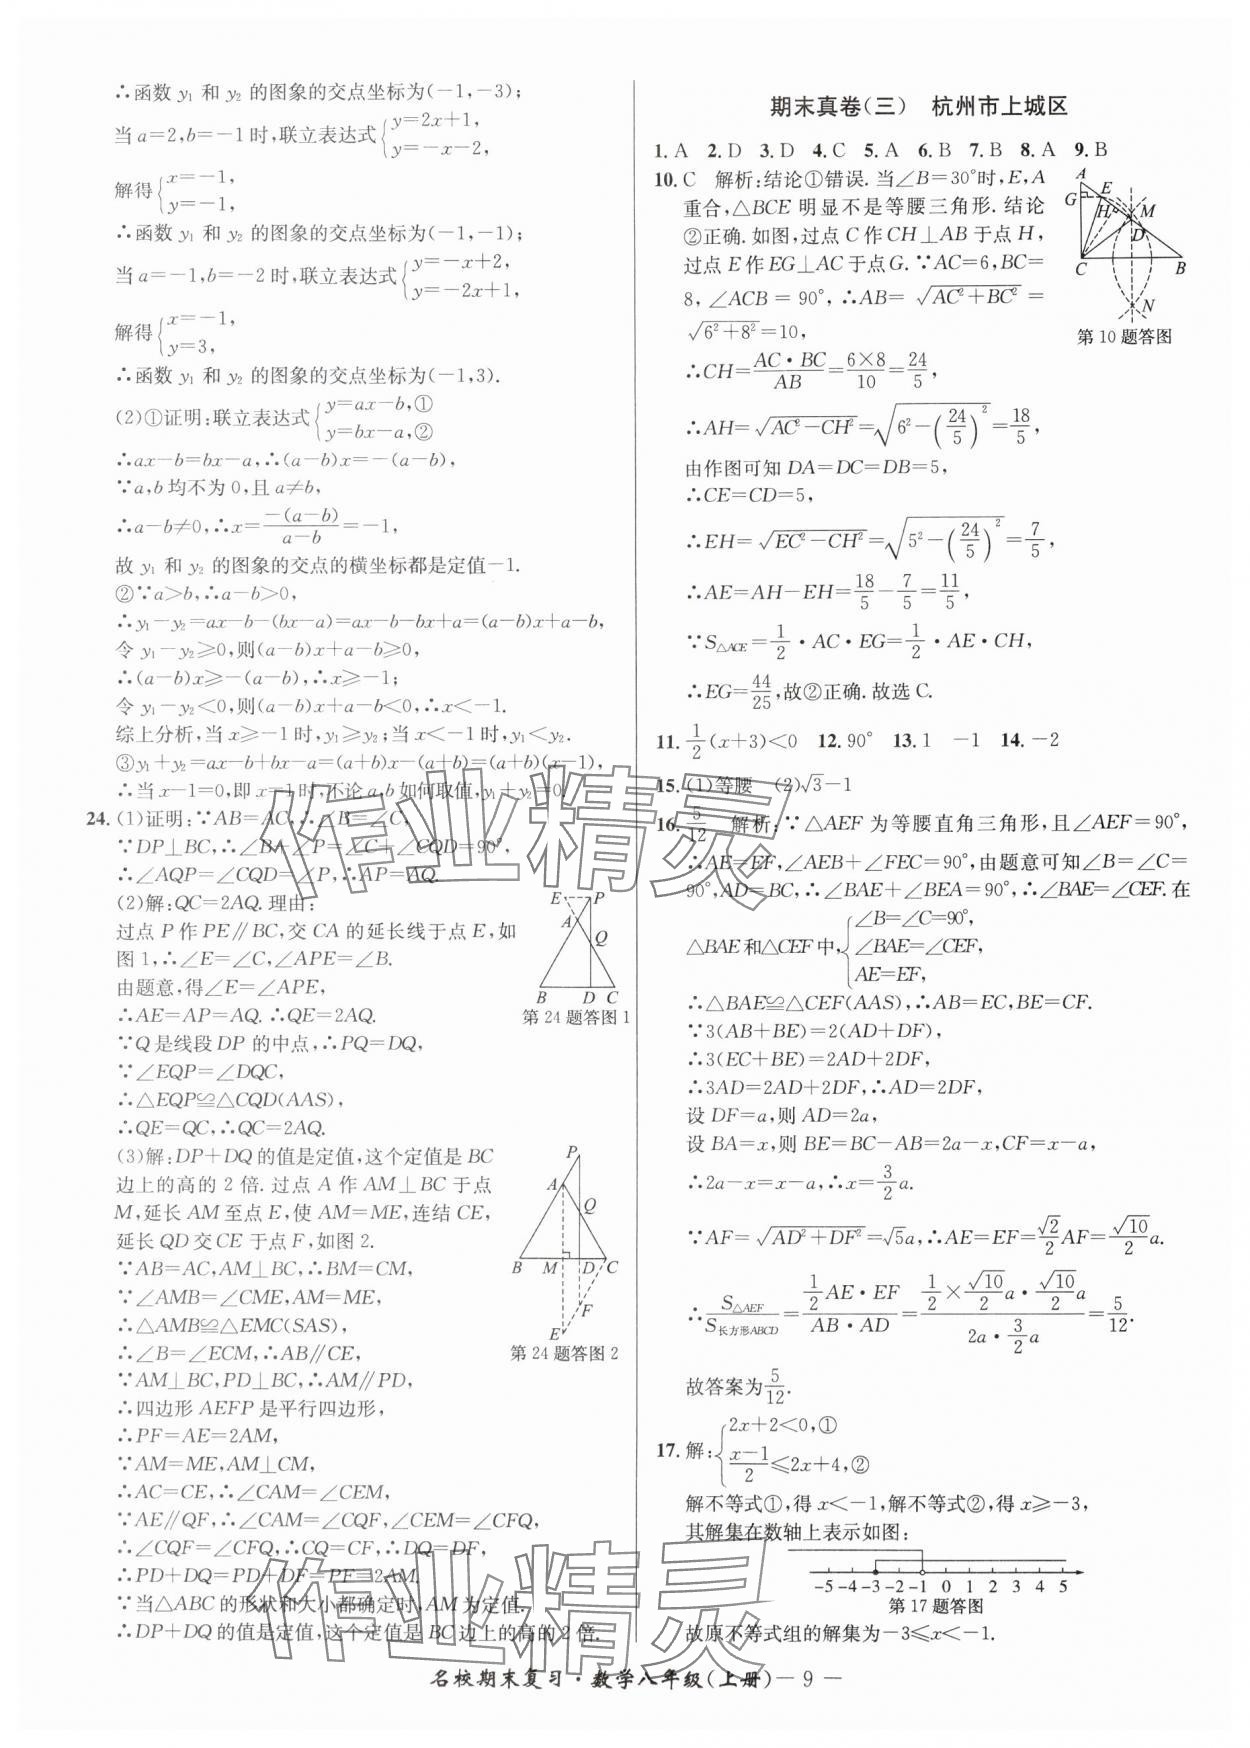 ∴函数 y₁ 和 y₂ 的图象的交点坐标为(-1,-3);
当 a=2,b=-1 时,联立表达式{y=2x+1, y=-x-2,
解得{x=-1, y=-1,
∴函数 y₁ 和 y₂ 的图象的交点坐标为(-1,-1);
当 a=-1,b=-2 时,联立表达式{y=-x+2, y=-2x+1,
解得{x=-1, y=3,
∴函数 y₁ 和 y₂ 的图象的交点坐标为(-1,3).
(2)①证明:联立表达式{y=ax-b,① y=bx-a,②
∴ax-b=bx-a,∴(a-b)x=-(a-b),
∵a,b 均不为 0,且 a≠b,
∴a-b≠0,∴x=-(a-b)/(a-b)=-1,
故 y₁ 和 y₂ 的图象的交点的横坐标都是定值-1.
②∵a>b,∴a-b>0,
∴y₁-y₂=ax-b-(bx-a)=ax-b-bx+a=(a-b)x+a-b,
令 y₁-y₂≥0,则(a-b)x+a-b≥0,
∴(a-b)x≥-(a-b),∴x≥-1;
令 y₁-y₂<0,则(a-b)x+a-b<0,∴x<-1.
综上分析,当 x≥-1 时,y₁≥y₂;当 x<-1 时,y₁<y₂.
③y₁+y₂=ax-b+bx-a=(a+b)x-(a+b)=(a+b)(x-1),
∴当 x-1=0,即 x=1时,不论 a,b 如何取值,y₁+y₂=0.
24.(1)证明:∵AB=AC,∴∠B=∠C.
∵DP⊥BC,∴∠B+∠P=∠C+∠CQD=90°,
∴∠AQP=∠CQD=∠P,∴AP=AQ.
(2)解:QC=2AQ.理由:
过点 P 作 PE∥BC,交 CA 的延长线于点 E,如
图 1,∴∠E=∠C,∠APE=∠B.
由题意,得∠E=∠APE,
∴AE=AP=AQ.∴QE=2AQ.
∵Q 是线段 DP 的中点,∴PQ=DQ,
∵∠EQP=∠DQC,
∴△EQP≌△CQD(AAS),
∴QE=QC,∴QC=2AQ.
E P A Q B D C
第 24 题答图 1
(3)解:DP+DQ 的值是定值,这个定值是 BC
边上的高的 2 倍.过点 A 作 AM⊥BC 于点
M,延长 AM 至点 E,使 AM=ME,连结 CE,
延长 QD 交 CE 于点 F,如图 2.
∵AB=AC,AM⊥BC,∴BM=CM,
∵∠AMB=∠CME,AM=ME,
∴△AMB≌△EMC(SAS),
∴∠B=∠ECM,∴AB∥CE,
∵AM⊥BC,PD⊥BC,∴AM∥PD,
∴四边形 AEFP 是平行四边形,
∴PF=AE=2AM,
∵AM=ME,AM⊥CM,
∴AC=CE,∴∠CAM=∠CEM,
∵AE∥QF,∴∠CAM=∠CQF,∠CEM=∠CFQ,
∴∠CQF=∠CFQ,∴CQ=CF,∴DQ=DF,
∴PD+DQ=PD+DF=PF=2AM.
∵当△ABC 的形状和大小都确定时,AM 为定值.
∴DP+DQ 的值是定值,这个定值是 BC 边上的高的 2 倍.
P A Q B M D C F E
第 24 题答图 2
期末真卷(三) 杭州市上城区
1.A 2.D 3.D 4.C 5.A 6.B 7.B 8.A 9.B
10.C 解析:结论①错误.当∠B=30°时,E,A
重合,△BCE 明显不是等腰三角形.结论
②正确.如图,过点 C 作 CH⊥AB 于点 H,
过点 E 作 EG⊥AC 于点 G.∵AC=6,BC=
8,∠ACB=90°,∴AB=√(AC²+BC²)=
√(6²+8²)=10,
A G E H M D C B N
第 10 题答图
∴CH=AC·BC/AB=6×8/10=24/5,
∴AH=√(AC²-CH²)=√(6²-(24/5)²)=18/5,
由作图可知 DA=DC=DB=5,
∴CE=CD=5,
∴EH=√(EC²-CH²)=√(5²-(24/5)²)=7/5,
∴AE=AH-EH=18/5-7/5=11/5,
∵S△ACE=1/2·AC·EG=1/2·AE·CH,
∴EG=44/25,故②正确.故选 C.
11.1/2(x+3)<0 12.90° 13.1 -1 14.-2
15.(1)等腰 (2)√3-1
16.5/12 解析:∵△AEF 为等腰直角三角形,且∠AEF=90°,
∴AE=EF,∠AEB+∠FEC=90°,由题意可知∠B=∠C=
90°,AD=BC,∴∠BAE+∠BEA=90°,∴∠BAE=∠CEF.在
△BAE和△CEF中,{∠B=∠C=90°, ∠BAE=∠CEF, AE=EF,
∴△BAE≌△CEF(AAS),∴AB=EC,BE=CF.
∵3(AB+BE)=2(AD+DF),
∴3(EC+BE)=2AD+2DF,
∴3AD=2AD+2DF,∴AD=2DF,
设 DF=a,则 AD=2a,
设 BA=x,则 BE=BC-AB=2a-x,CF=x-a,
∴2a-x=x-a,∴x=3/2a.
∵AF=√(AD²+DF²)=√5a,∴AE=EF=√2/2AF=√10/2a.
∴S△AEF/S长方形ABCD=(1/2AE·EF)/(AB·AD)=(1/2×√10/2a·√10/2a)/(2a·3/2a)=5/12.
故答案为5/12.
17.解:{2x+2<0,① (x-1)/2≤2x+4,②
解不等式①,得 x<-1,解不等式②,得 x≥-3,
其解集在数轴上表示如图:
-5 -4 -3 -2 -1 0 1 2 3 4 5
第 17 题答图
故原不等式组的解集为-3≤x<-1.
作业精灵
作业精灵
名校期末复习·数学八年级(上册)— 9 —